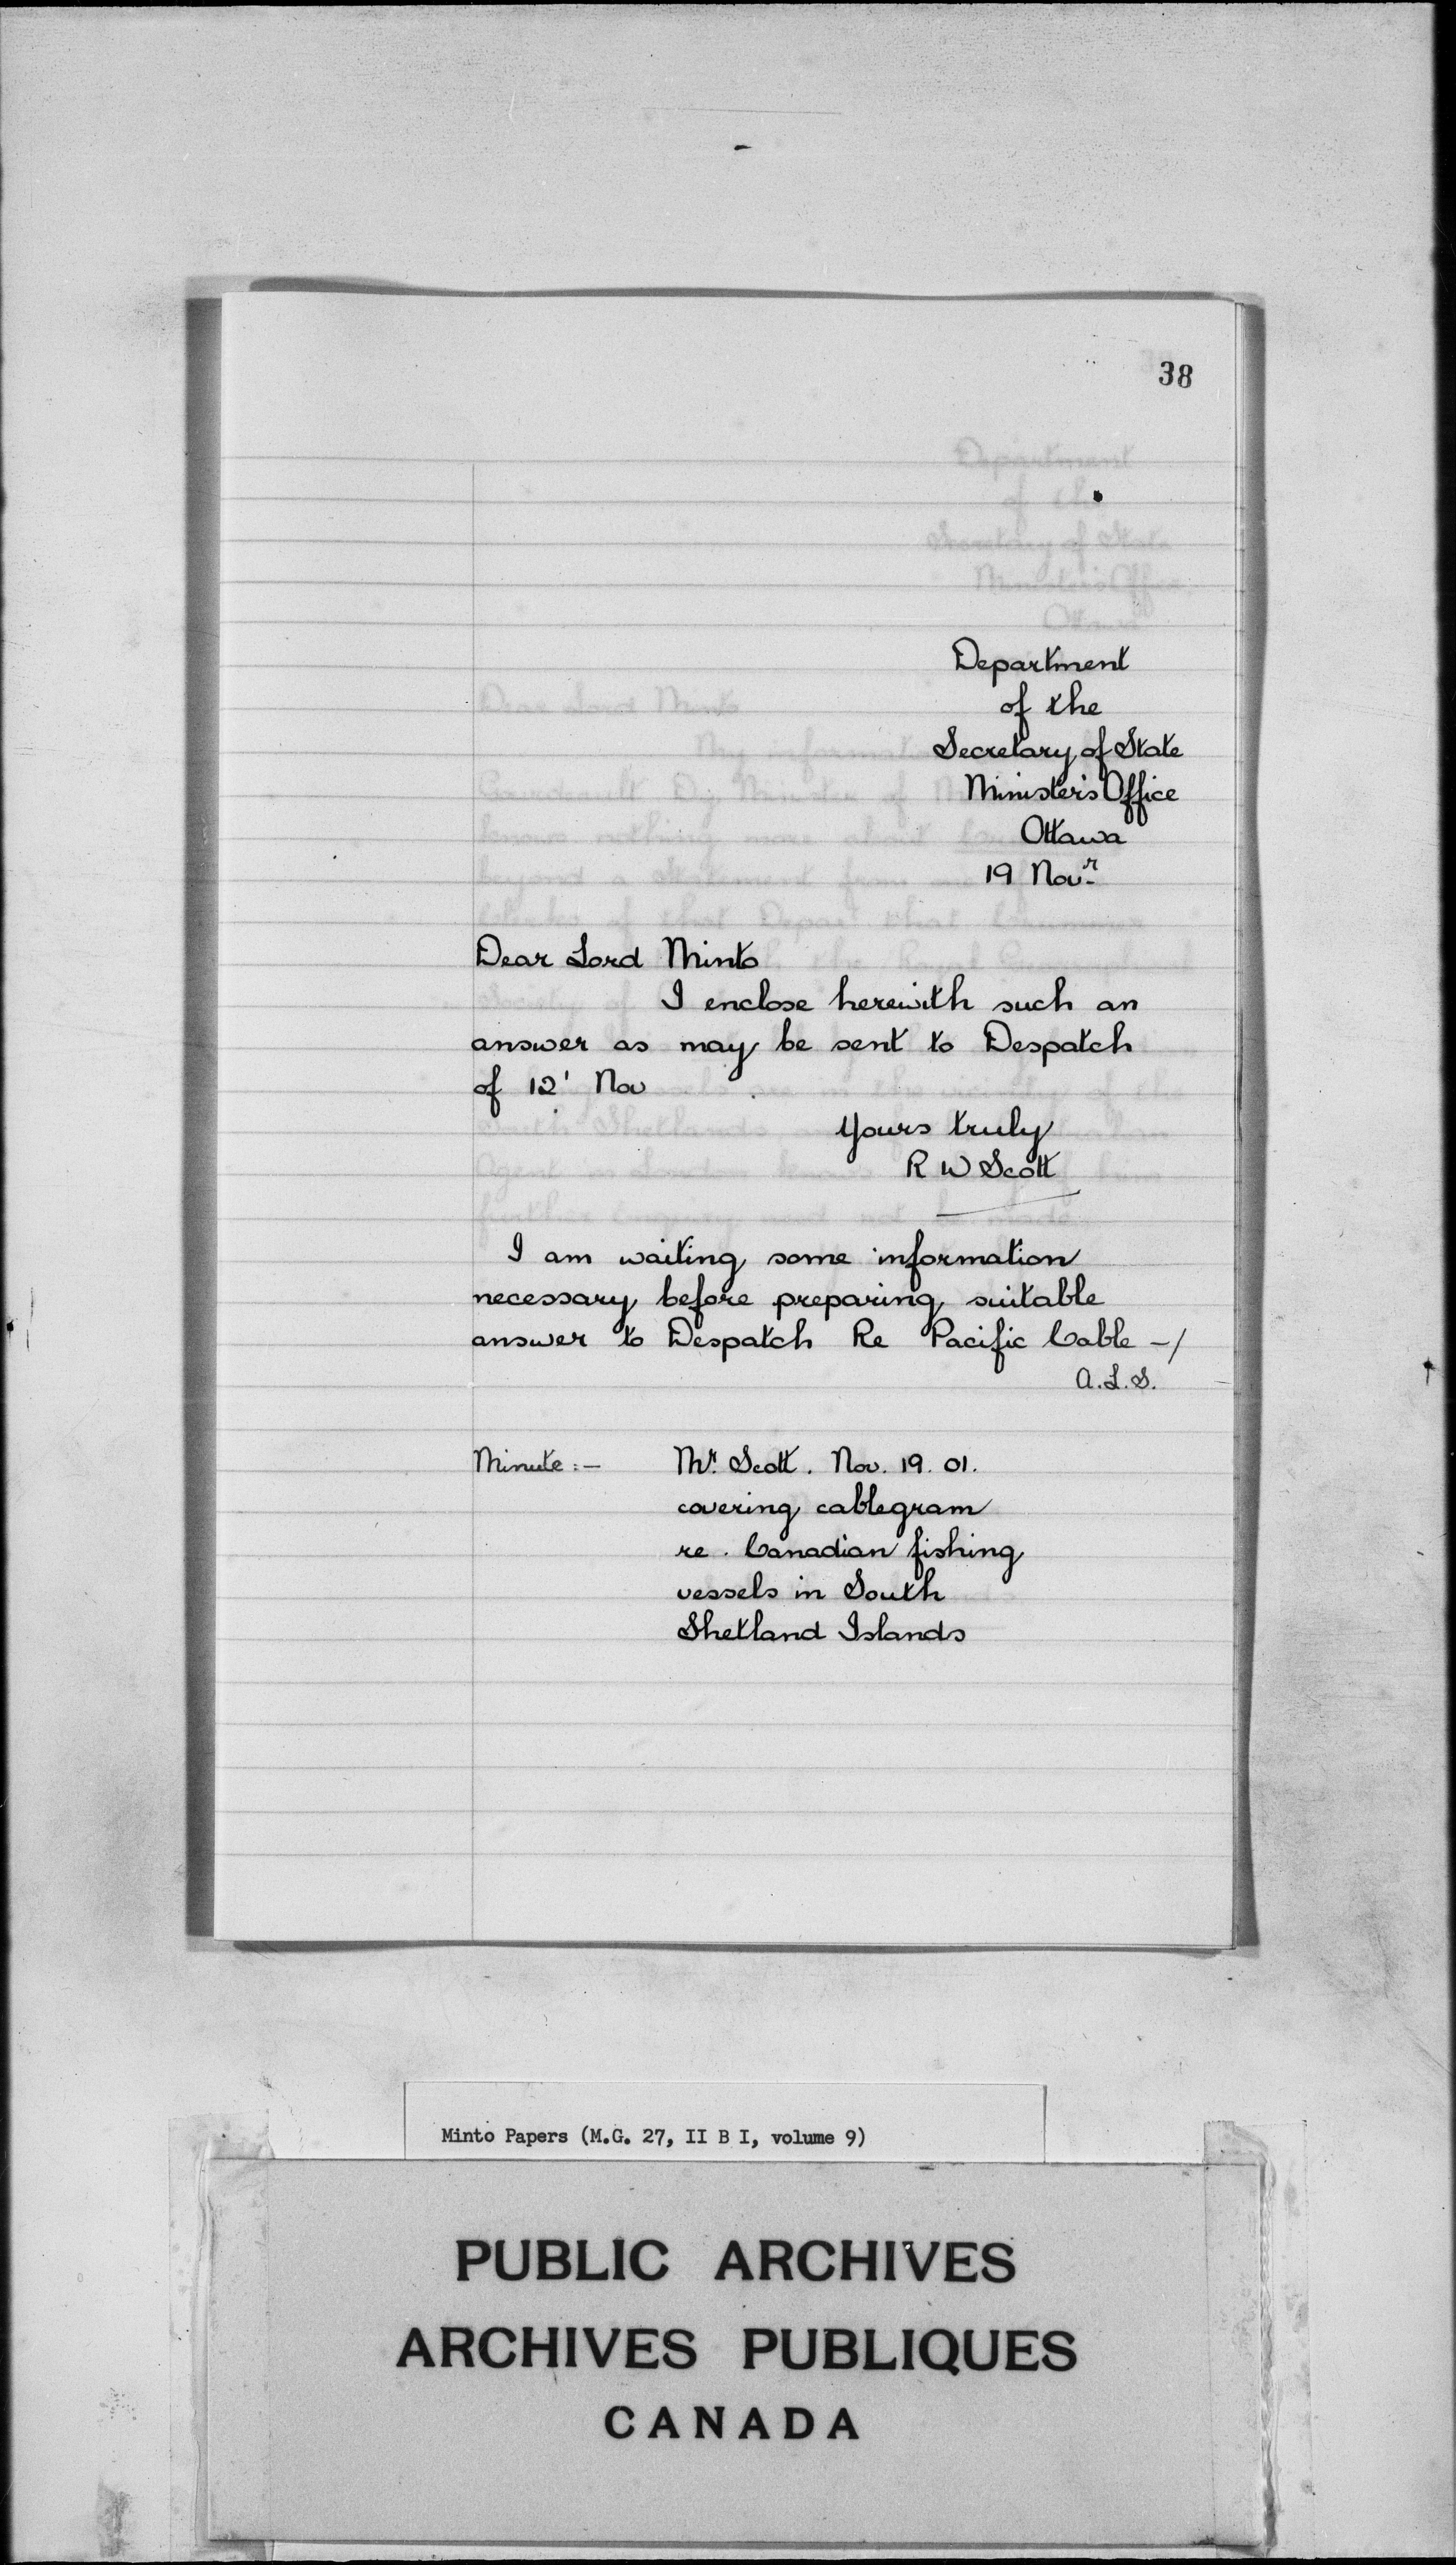 38
Department
of the
Secretary of State
Minister's Office
Ottawa
19 Novr
Dear Lord Minto
I enclose herewith such an
answer as may be sent to Despatch
of 12' Nov
Yours truly
R W Scott
I am waiting some information
necessary before preparing suitable
answer to Despatch Re Pacific Cable -/
A.L.S.
Minute:- Mr. Scott. Nov. 19. 01.
covering cablegram
re. Canadian fishing
vessels in South
Shetland Islands
Minto Papers (M.G. 27, II B I, volume 9)
PUBLIC ARCHIVES
ARCHIVES PUBLIQUES
CANADA